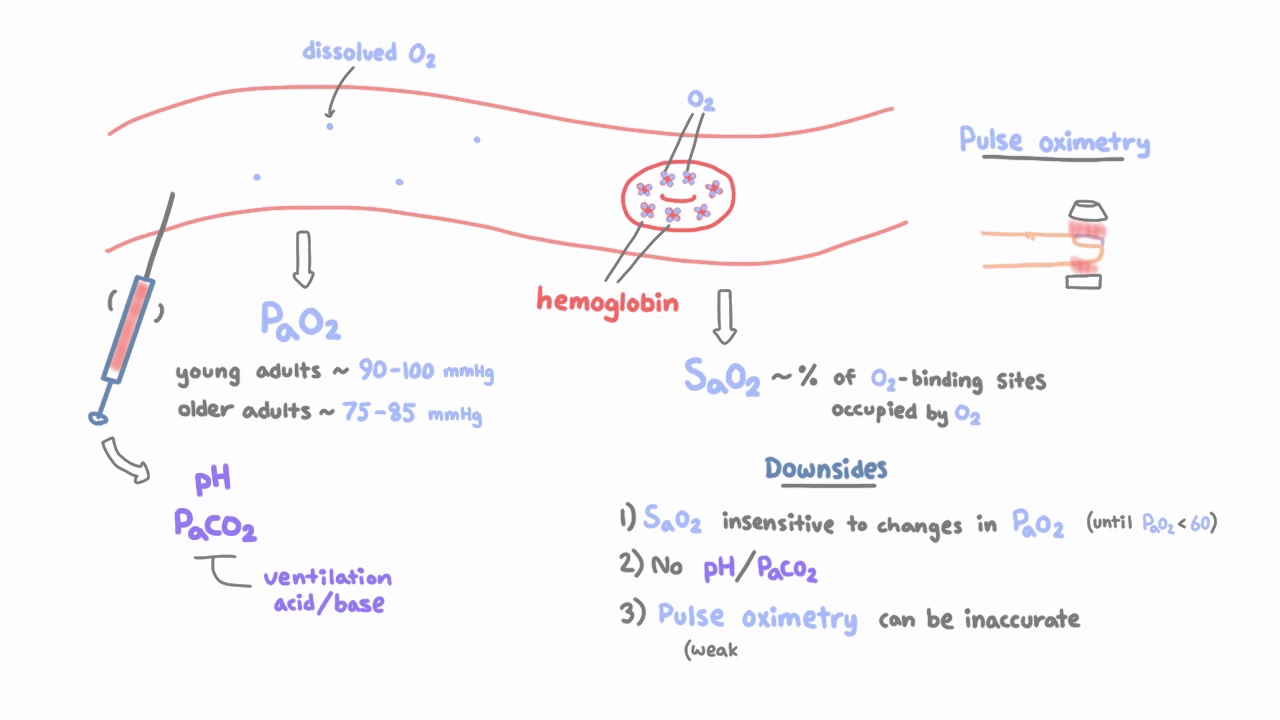 dissolved O₂
O₂
Pulse oximetry
hemoglobin
PaO₂
young adults ~ 90-100 mmHg
older adults ~ 75-85 mmHg
SaO₂ ~ % of O₂-binding sites
occupied by O₂
pH
PaCO₂
ventilation
acid/base
Downsides
1) SaO₂ insensitive to changes in PaO₂ (until PaO₂ < 60)
2) No pH/PaCO₂
3) Pulse oximetry can be inaccurate
(weak